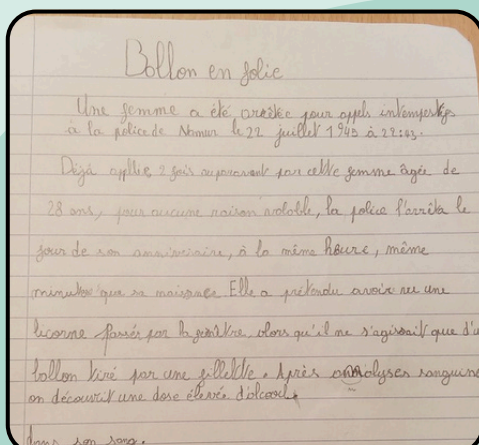 Bollon en folie
Une femme a été arrêtée pour appels intempestifs
à la police de Namur le 22 juillet 1945 à 22:43.
Déjà appllée 2 fois auparavant par cette femme âgée de
28 ans, pour aucune raison valable, la police l'arrêta le
jour de son anniversaire, à la même heure, même
minutes que sa naissance. Elle a prétendu avoir vu une
licorne passer par la fenêtre, alors qu'il ne s'agissait que d'u
ballon tiré par une fillette. Après analyses sanguine
on découvrit une dose élevée d'alcool
dans son sang.